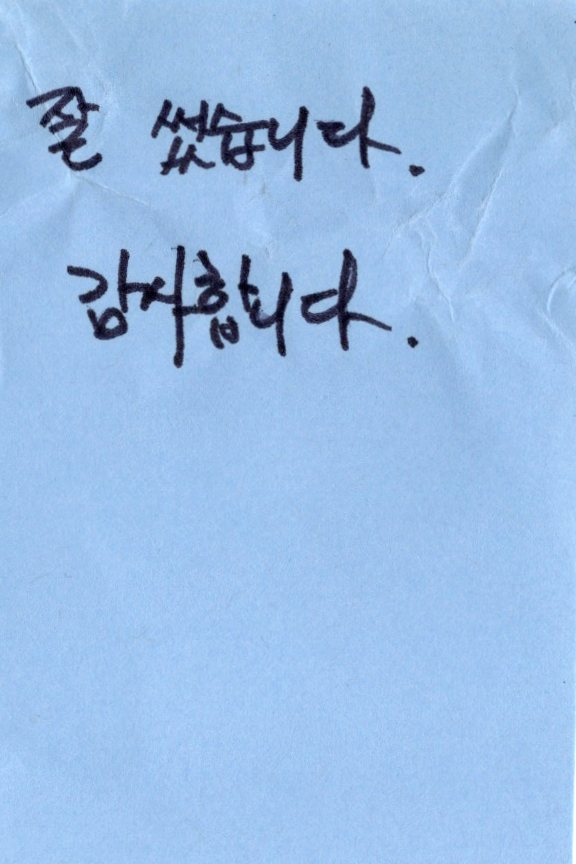 잘 썼습니다.
감사합니다.